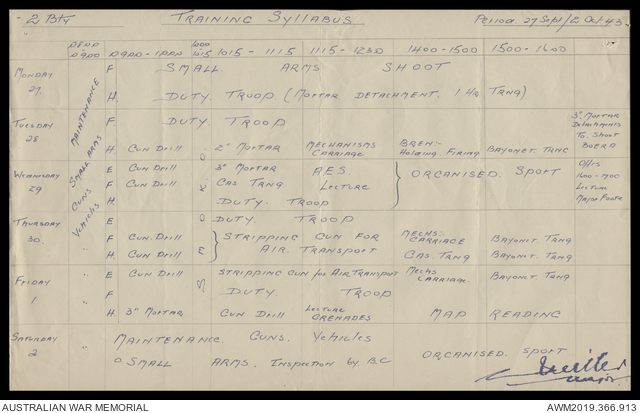 2 Bty TRAINING SYLLABUS Period 27 Sept/2 Oct 43
0900 0900 - 1000 1000 1015 1015 - 1115 1115 - 1230 1400 - 1500 1500 - 1600
MONDAY 27. F SMALL ARMS SHOOT
H. DUTY TROOP (MORTAR DETACHMENT 1 HR TRNG)
TUESDAY 28 F. DUTY TROOP 3" MORTAR Detachments To Shoot BOERA
H GUN Drill 2" MORTAR MECHANISMS CARRIAGE BREN - Holding. Firing BAYONET TRNG
WEDNESDAY 29 E GUN Drill 3" MORTAR A.E.S. ORGANISED. SPORT Offrs 1600-1700 Lecture Major
F GUN Drill GAS TRNG LECTURE
H DUTY TROOP
THURSDAY 30. E DUTY TROOP
F GUN. Drill STRIPPING GUN FOR AIR. TRANSPORT MECHS- CARRIAGE BAYONET TRNG
H GUN. Drill GAS. TRNG BAYONET. TRNG
FRIDAY 1 E GUN Drill STRIPPING GUN for AIR TRANSPORT MECHS CARRIAGE. BAYONET TRNG
F DUTY TROOP
H. 3" MORTAR GUN Drill LECTURE GRENADES MAP READING
SATURDAY 2 MAINTENANCE. GUNS. Vehicles
SMALL ARMS. Inspection by. B.C ORGANISED. SPORT
MAINTENANCE
SMALL ARMS
GUNS
Vehicles
Major
AUSTRALIAN WAR MEMORIAL AWM2019.366.913